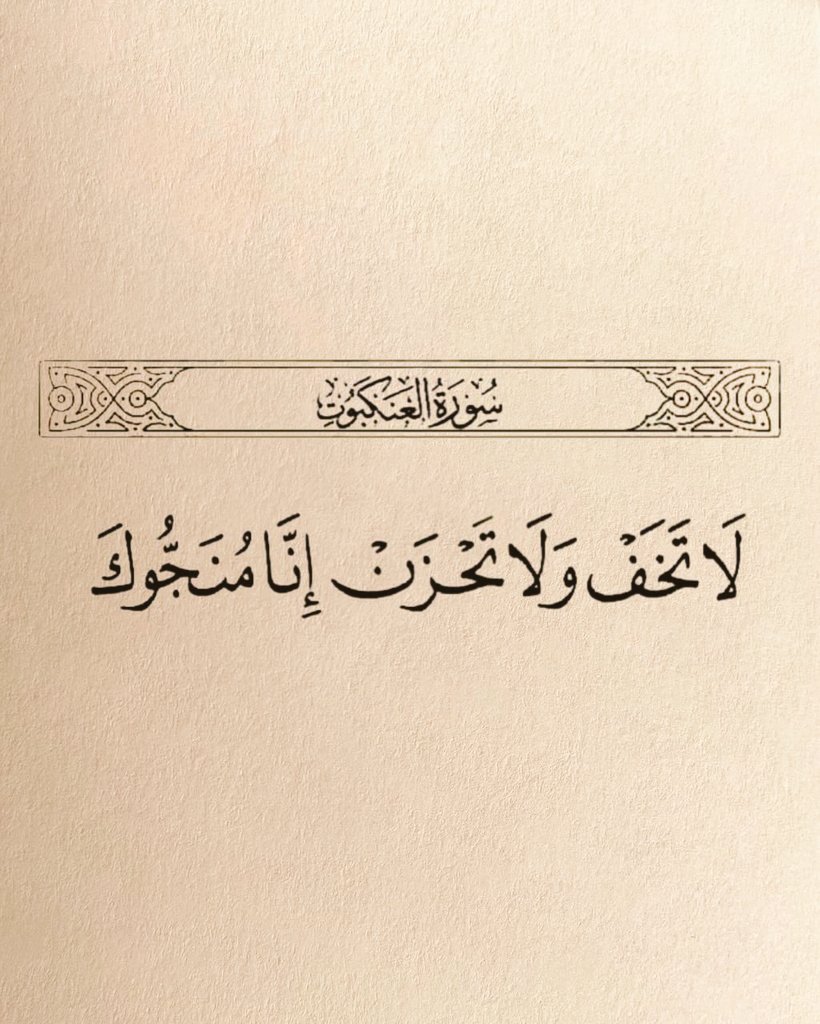 سُورَةُ العَنكَبُوتِ
لَا تَخَفْ وَلَا تَحْزَنْ إِنَّا مُنَجُّوكَ